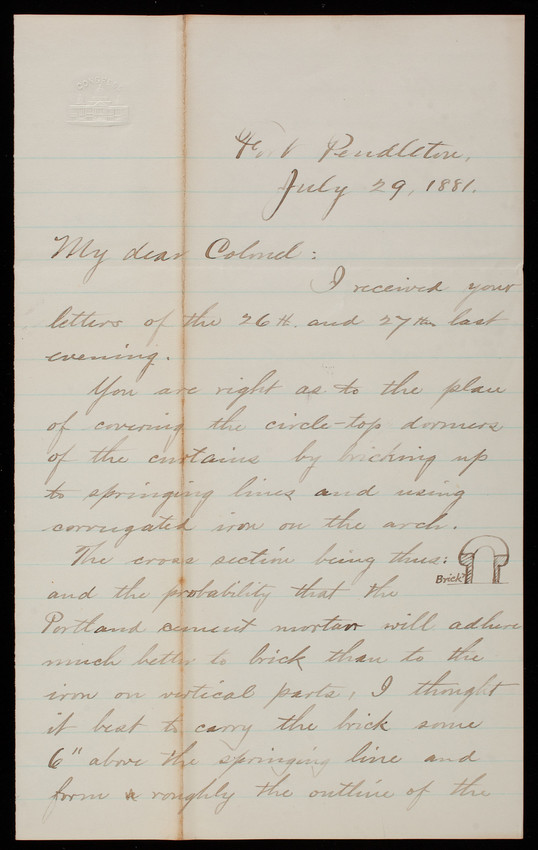 Fort Pendleton,
July 29, 1881.
My dear Colonel:
I received your
letters of the 26th. and 27th last
evening.
You are right as to the plan
of covering the circle-top dormers
of the curtains by bricking up
to springing lines and using
corrugated iron on the arch.
The cross section being thus:
Brick
and the probability that the
Portland cement mortar will adhere
much better to brick than to the
iron on vertical parts, I thought
it best to carry the brick some
6" above the springing line and
form roughly the outline of the